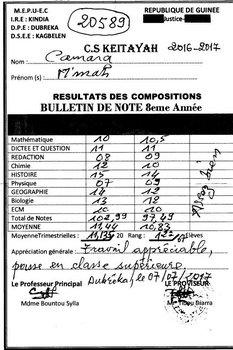 M.E.P.U-E.C
REPUBLIQUE DE GUINEE
I.R.E : KINDIA
20589
Justice
D.P.E : DUBREKA
D.S.E.E : KAGBELEN
C.S KEITAYAH 2016-2017
Nom : Camara
Prénom (s) : M'mah
RESULTATS DES COMPOSITIONS
BULLETIN DE NOTE 8eme Année
Mathématique 10 10,5
DICTEE ET QUESTION 11 11
REDACTION 08 09
Chimie 12 10
HISTOIRE 15 14
Physique 07 09
GEOGRAPHIE 14 13
Biologie 13 18
ECM 10 10
Total de Notes 102,99 97,49
MOYENNE 11,44 10,83
MoyenneTrimestrielles : 11,13/20 Rang : 12e Elèves
Appréciation générale : Travail appréciable,
passe en classe supérieure,
Dubréka, le 07/07/2017
Le Professeur Principal LE PROVISEUR
Mdme Bountou Sylla